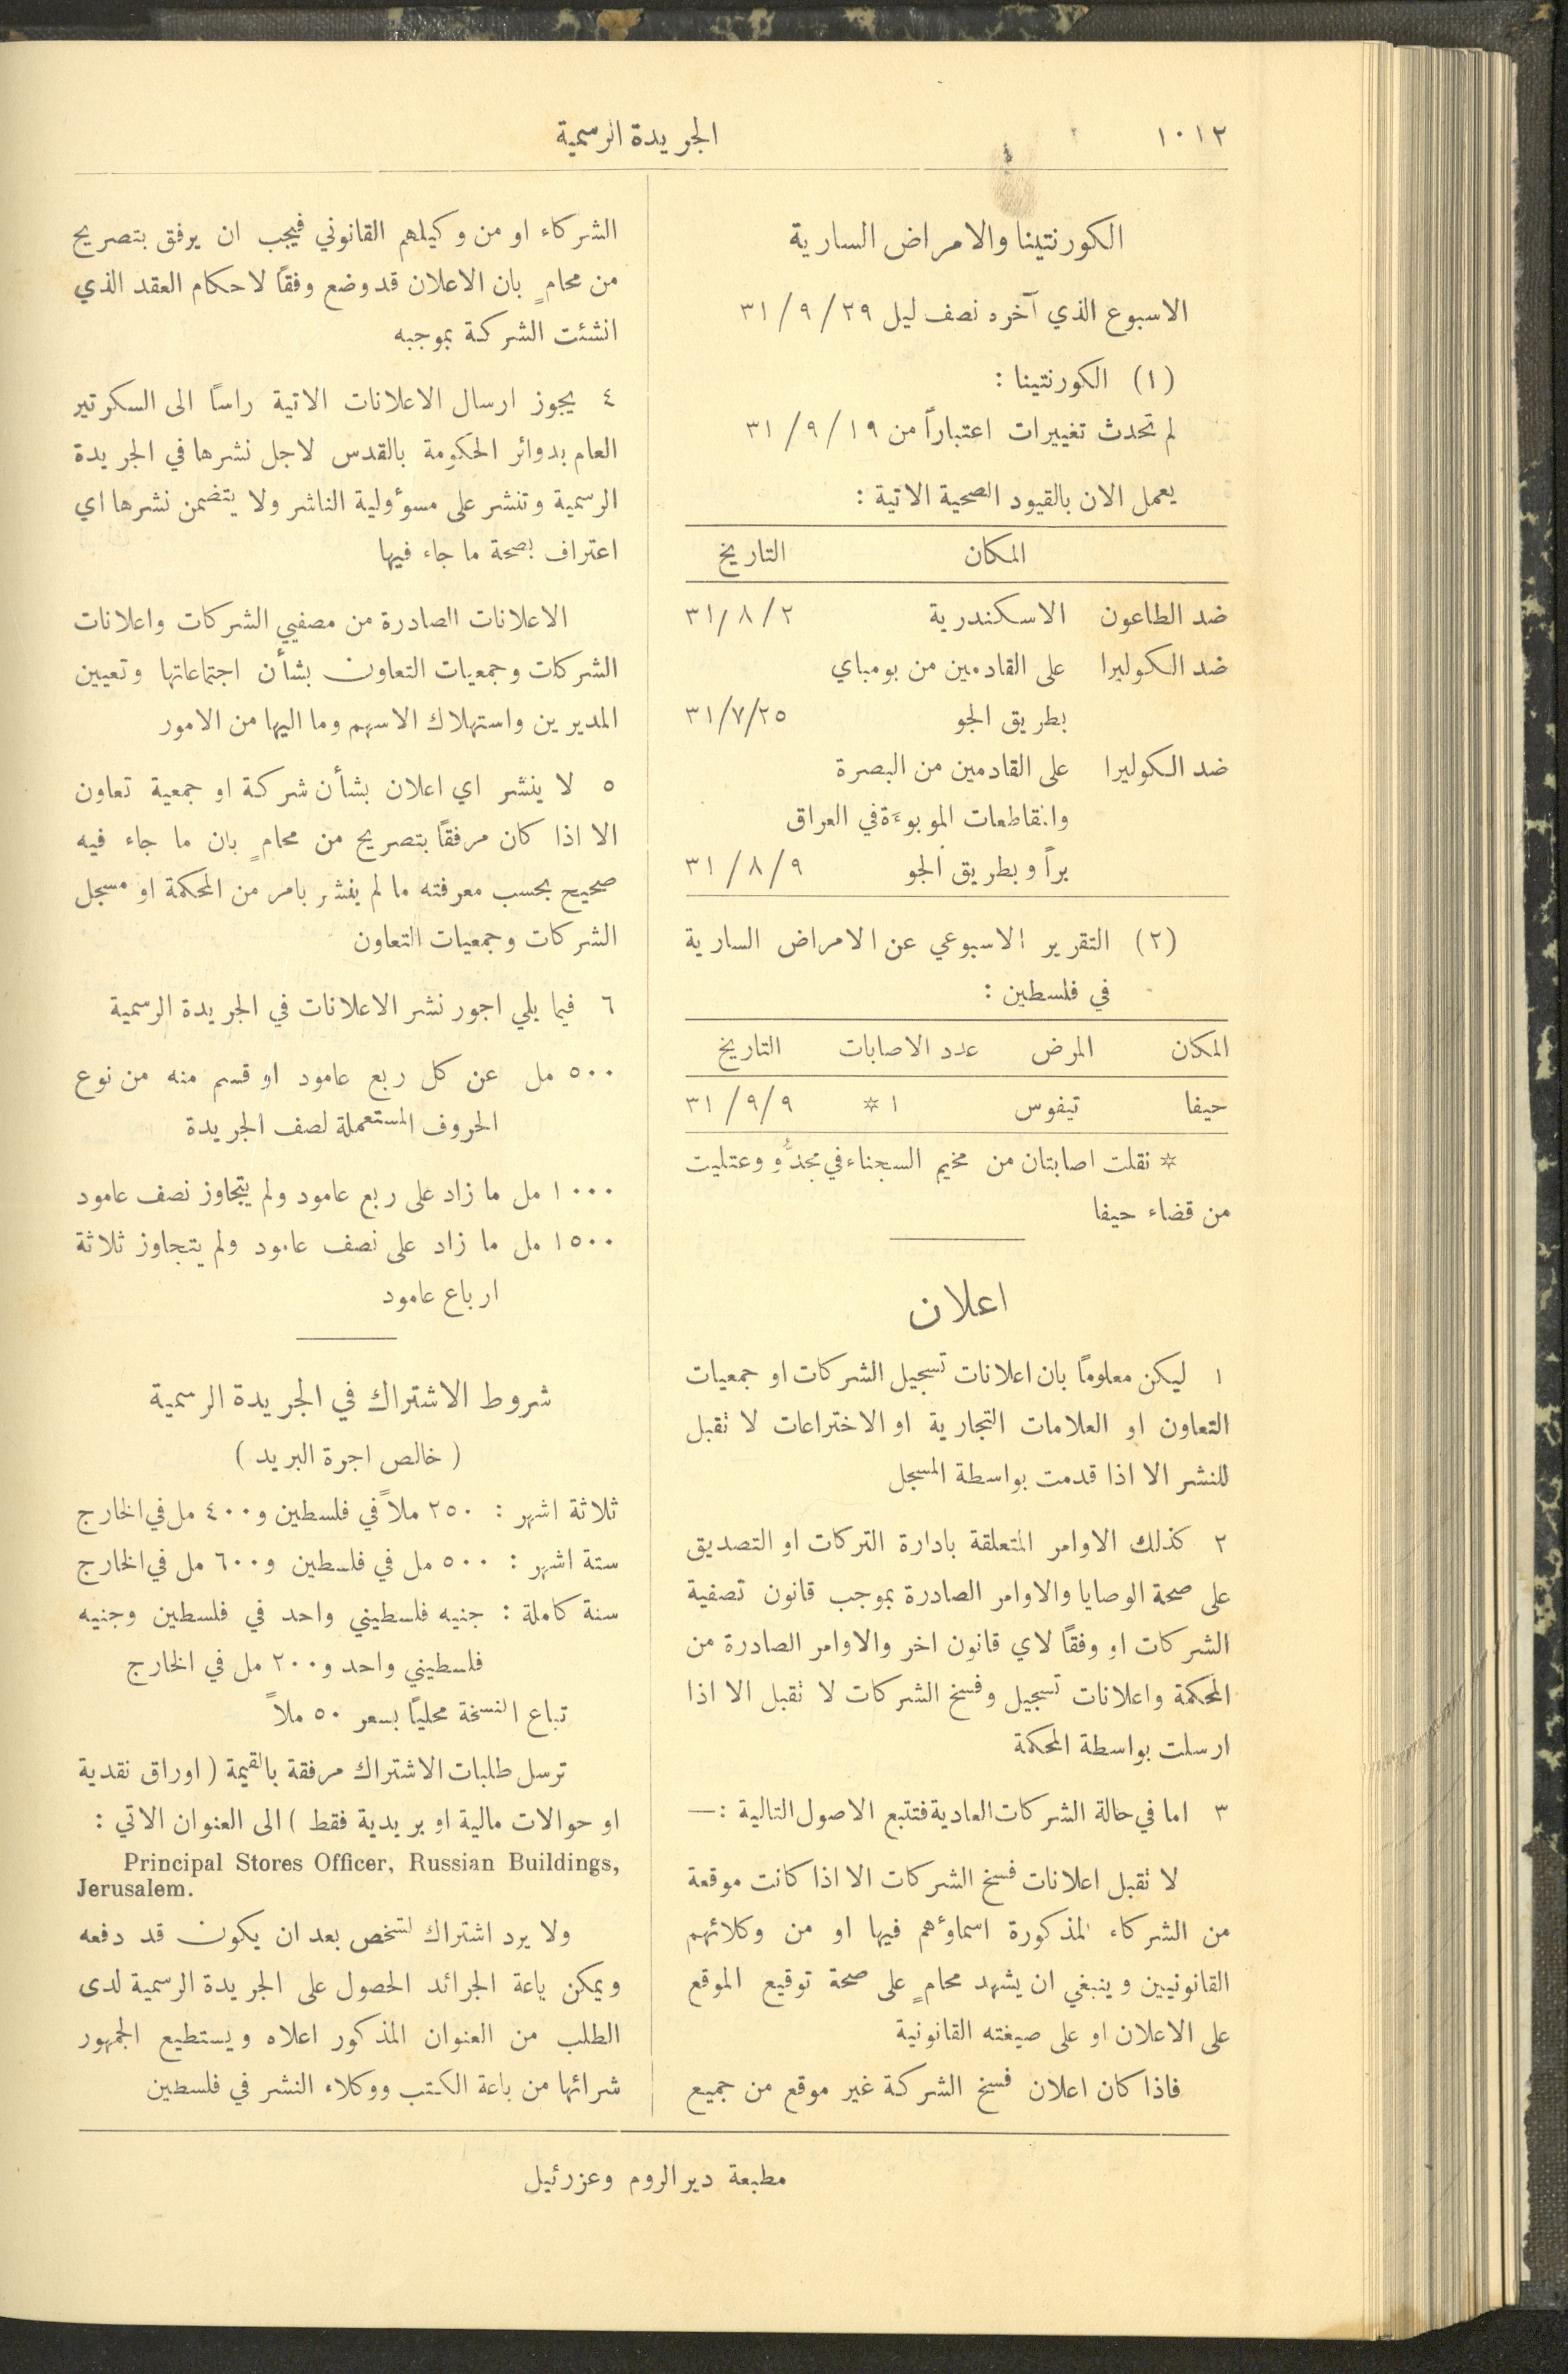 ١٠١٢
الجريدة الرسمية
الكورنتينا والامراض السارية
الاسبوع الذي آخره نصف ليل ٢٩/٩/٣١
(١) الكورنتينا :
لم تحدث تغييرات اعتباراً من ١٩/٩/٣١
يعمل الان بالقيود الصحية الاتية :
المكان التاريخ
ضد الطاعون الاسكندرية ٢/٨/٣١
ضد الكوليرا على القادمين من بومباي
بطريق الجو ٢٥/٧/٣١
ضد الكوليرا على القادمين من البصرة
والمقاطعات الموبوءة في العراق
براً وبطريق الجو ٩/٨/٣١
(٢) التقرير الاسبوعي عن الامراض السارية
في فلسطين :
المكان المرض عدد الاصابات التاريخ
حيفا تيفوس ١ * ٩/٩/٣١
* نقلت اصابتان من مخيم السجناء في مجدُّو وعتليت
من قضاء حيفا
اعلان
١ ليكن معلوماً بان اعلانات تسجيل الشركات او جمعيات
التعاون او العلامات التجارية او الاختراعات لا تقبل
للنشر الا اذا قدمت بواسطة المسجل
٢ كذلك الاوامر المتعلقة بادارة التركات او التصديق
على صحة الوصايا والاوامر الصادرة بموجب قانون تصفية
الشركات او وفقاً لاي قانون اخر والاوامر الصادرة من
المحكمة واعلانات تسجيل وفسخ الشركات لا تقبل الا اذا
ارسلت بواسطة المحكمة
٣ اما في حالة الشركات العادية فتتبع الاصول التالية :—
لا تقبل اعلانات فسخ الشركات الا اذا كانت موقعة
من الشركاء المذكورة اسماؤهم فيها او من وكلائهم
القانونيين وينبغي ان يشهد محامٍ على صحة توقيع الموقع
على الاعلان او على صيغته القانونية
فاذا كان اعلان فسخ الشركة غير موقع من جميع
الشركاء او من وكيلهم القانوني فيجب ان يرفق بتصريح
من محامٍ بان الاعلان قد وضع وفقاً لاحكام العقد الذي
انشئت الشركة بموجبه
٤ يجوز ارسال الاعلانات الاتية راساً الى السكرتير
العام بدوائر الحكومة بالقدس لاجل نشرها في الجريدة
الرسمية وتنشر على مسؤولية الناشر ولا يتضمن نشرها اي
اعتراف بصحة ما جاء فيها
الاعلانات الصادرة من مصفيي الشركات واعلانات
الشركات وجمعيات التعاون بشأن اجتماعاتها وتعيين
المديرين واستهلاك الاسهم وما اليها من الامور
٥ لا ينشر اي اعلان بشأن شركة او جمعية تعاون
الا اذا كان مرفقاً بتصريح من محامٍ بان ما جاء فيه
صحيح بحسب معرفته ما لم ينشر بامر من المحكمة او مسجل
الشركات وجمعيات التعاون
٦ فيما يلي اجور نشر الاعلانات في الجريدة الرسمية
٥٠٠ مل عن كل ربع عامود او قسم منه من نوع
الحروف المستعملة لصف الجريدة
١٠٠٠ مل ما زاد على ربع عامود ولم يتجاوز نصف عامود
١٥٠٠ مل ما زاد على نصف عامود ولم يتجاوز ثلاثة
ارباع عامود
شروط الاشتراك في الجريدة الرسمية
( خالص اجرة البريد )
ثلاثة اشهر : ٢٥٠ ملاً في فلسطين و٤٠٠ مل في الخارج
ستة اشهر : ٥٠٠ مل في فلسطين و٦٠٠ مل في الخارج
سنة كاملة : جنيه فلسطيني واحد في فلسطين وجنيه
فلسطيني واحد و٢٠٠ مل في الخارج
تباع النسخة محلياً بسعر ٥٠ ملاً
ترسل طلبات الاشتراك مرفقة بالقيمة ( اوراق نقدية
او حوالات مالية او بريدية فقط ) الى العنوان الاتي :
Principal Stores Officer, Russian Buildings,
Jerusalem.
ولا يرد اشتراك لشخص بعد ان يكون قد دفعه
ويمكن باعة الجرائد الحصول على الجريدة الرسمية لدى
الطلب من العنوان المذكور اعلاه ويستطيع الجمهور
شرائها من باعة الكتب ووكلاء النشر في فلسطين
مطبعة دير الروم وعزرئيل